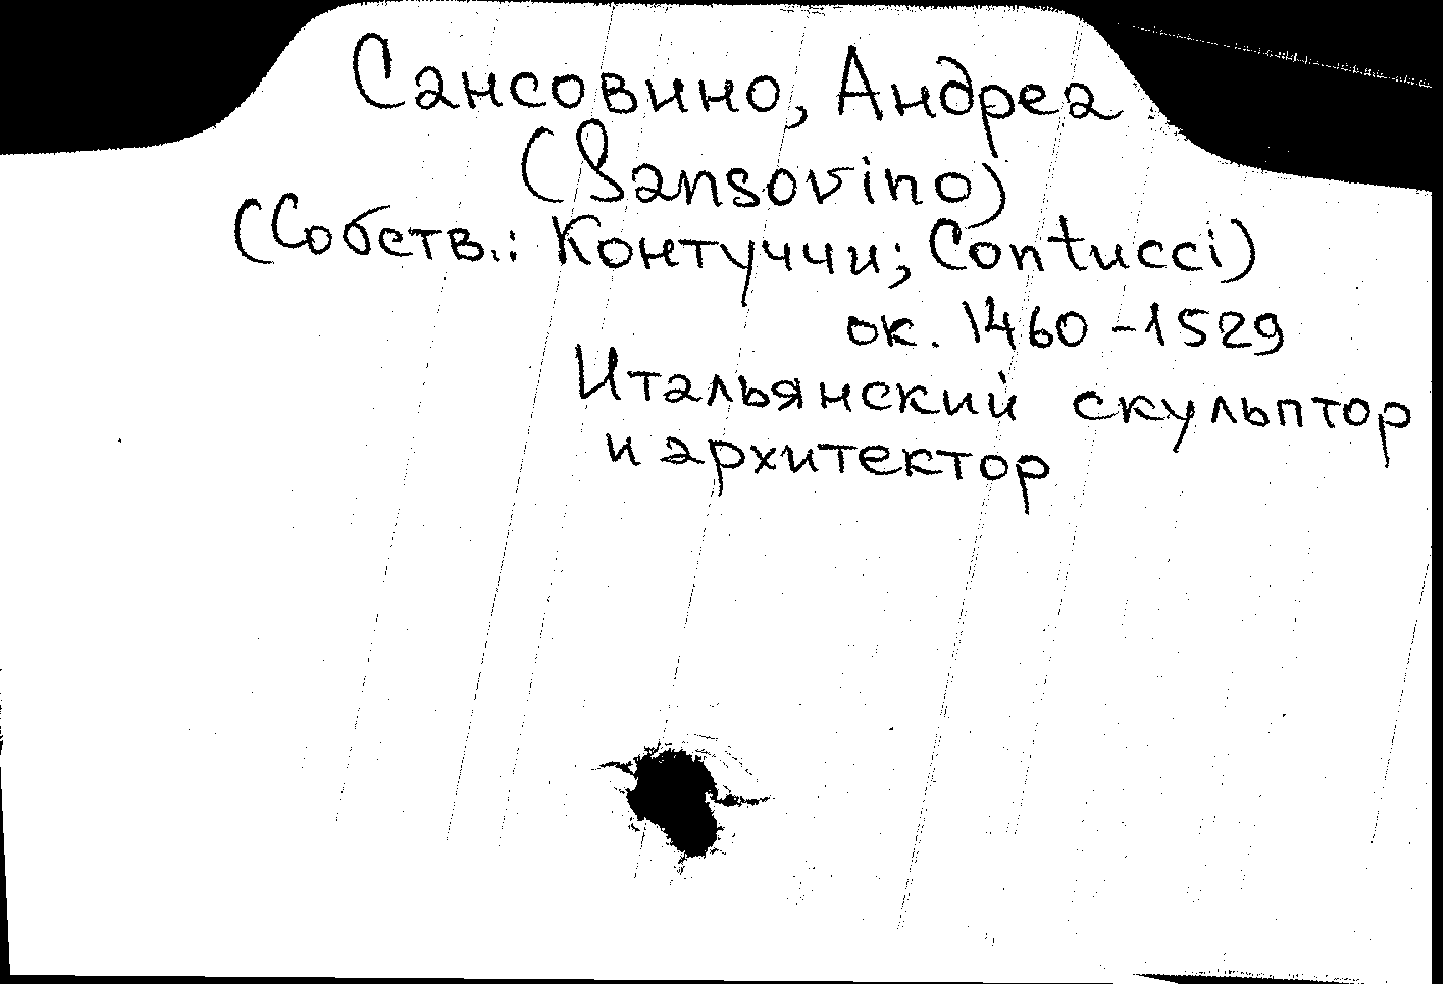 Сансовино, Андреа
(Sansovino)
(Собств.: Контуччи; Contucci)
ок. 1460-1529
Итальянский скульптор
и архитектор